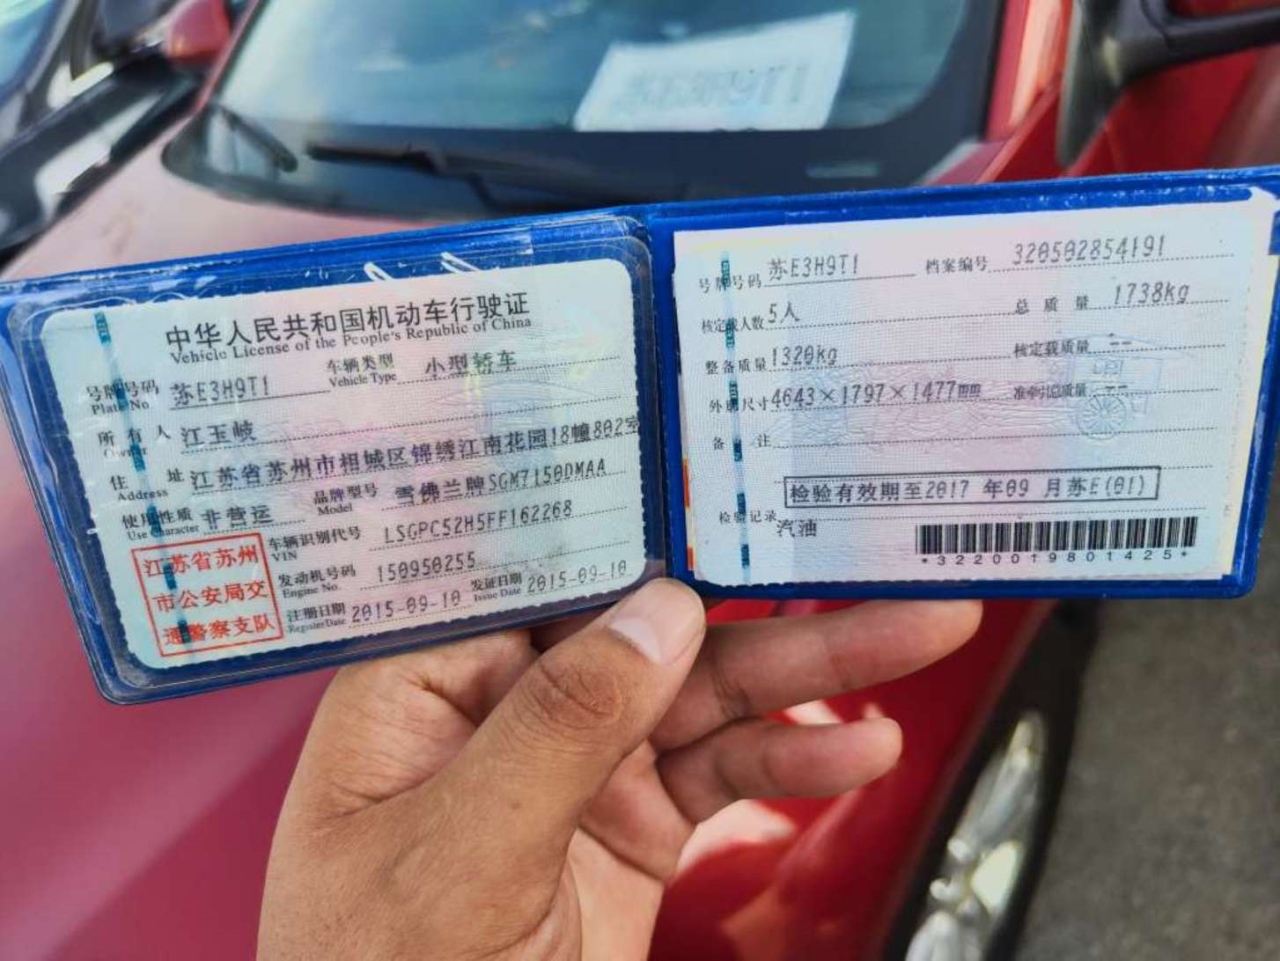 中华人民共和国机动车行驶证
Vehicle License of the People's Republic of China
号牌号码 苏E3H9T1 车辆类型 小型轿车
Plate No. Vehicle Type
所有人 江玉岐
Owner
住址 江苏省苏州市相城区锦绣江南花园18幢802室
Address
使用性质 非营运 品牌型号 雪佛兰牌SGM7150DMAA
Use Character Model
车辆识别代号 LSGPC52H5FF162268
VIN
发动机号码 150950255
Engine No.
注册日期 2015-09-10 发证日期 2015-09-10
Register Date Issue Date
江苏省苏州
市公安局交
通警察支队
号牌号码 苏E3H9T1 档案编号 320502854191
核定载人数 5人 总质量 1738kg
整备质量 1320kg 核定载质量 --
外廓尺寸 4643×1797×1477mm 准牵引总质量 --
备注
检验有效期至2017 年09 月苏E(01)
检验记录 汽油
*3220019801425*
苏E3H9T1